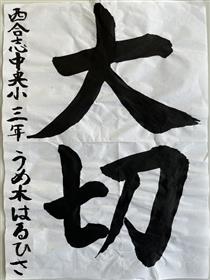 大切
西合志中央小 三年 うめ木はるひさ